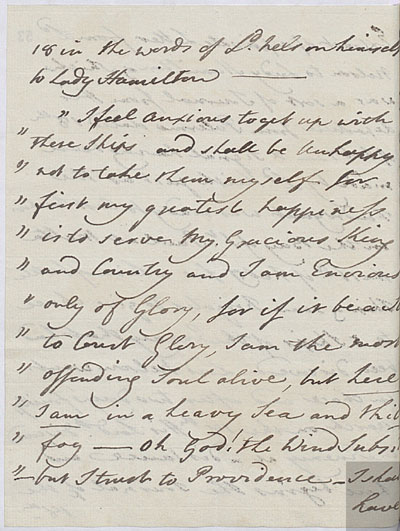 is in the words of Ld. Nelson himself
to Lady Hamilton ———
" I feel anxious to get up with
" these Ships and shall be unhappy
" not to take them myself for
" first my greatest happiness
" is to serve My Gracious King
" and Country and I am Envious
" only of Glory, for if it be a
" to Covet Glory, I am the most
" offending Soul alive, but here
" I am in a heavy Sea and thick
" fog — oh God! the Wind Subsi
" — but I trust to Providence — I shall
have